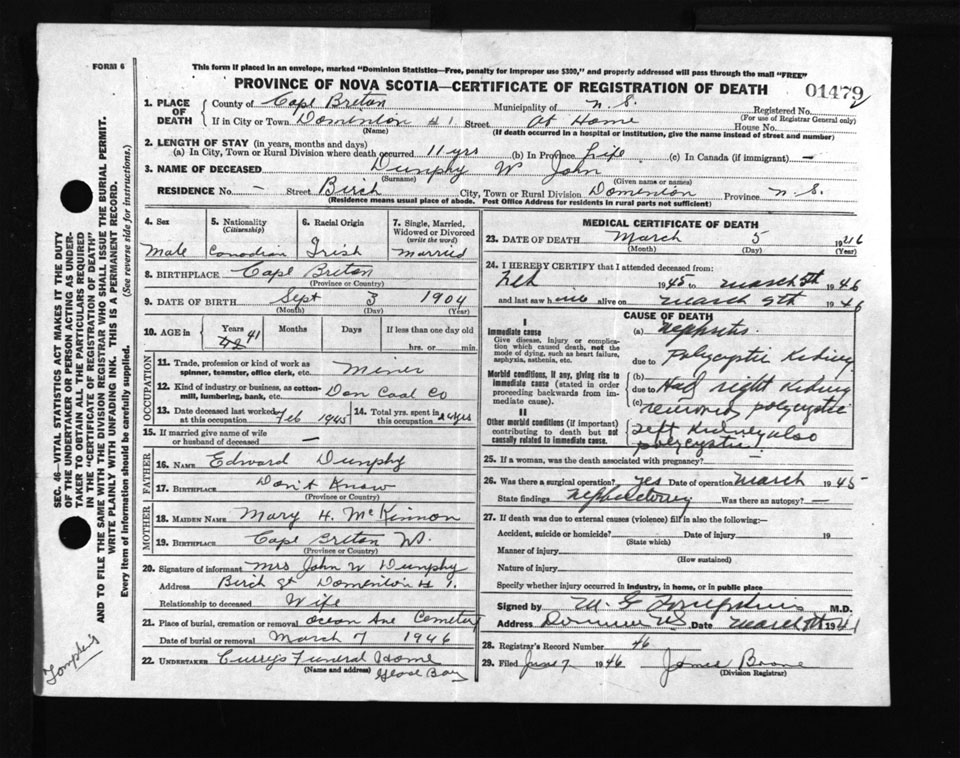 FORM 6
This form if placed in an envelope, marked "Dominion Statistics—Free, penalty for improper use $300," and properly addressed will pass through the mail "FREE"
PROVINCE OF NOVA SCOTIA—CERTIFICATE OF REGISTRATION OF DEATH
01479
1. PLACE OF DEATH
County of Cape Breton Municipality of N. S. Registered No.
(For use of Registrar General only)
If in City or Town Dominion # 1 Street At Home House No.
(Name) (If death occurred in a hospital or institution, give the name instead of street and number)
2. LENGTH OF STAY (in years, months and days)
(a) In City, Town or Rural Division where death occurred 11 yrs (b) In Province Life (c) In Canada (if immigrant) —
3. NAME OF DECEASED Dunphy W John
(Surname) (Given name or names)
RESIDENCE No. - Street Birch City, Town or Rural Division Dominion Province N. S.
(Residence means usual place of abode. Post Office Address for residents in rural parts not sufficient)
4. Sex
Male
5. Nationality (Citizenship)
Canadian
6. Racial Origin
Irish
7. Single, Married, Widowed or Divorced (write the word)
Married
8. BIRTHPLACE Cape Breton
(Province or Country)
9. DATE OF BIRTH Sept 3 1904
(Month) (Day) (Year)
10. AGE in Years Months Days If less than one day old
41
hrs. or min.
OCCUPATION
11. Trade, profession or kind of work as spinner, teamster, office clerk, etc. Miner
12. Kind of industry or business, as cotton-mill, lumbering, bank, etc. Dom Coal Co
13. Date deceased last worked at this occupation Feb 1945
14. Total yrs. spent in this occupation yrs
15. If married give name of wife or husband of deceased —
FATHER
16. NAME Edward Dunphy
17. BIRTHPLACE Don't Know
(Province or Country)
MOTHER
18. MAIDEN NAME Mary H. McKinnon
19. BIRTHPLACE Cape Breton NS.
(Province or Country)
20. Signature of informant Mrs John W Dunphy
Address Birch St Dominion # 1.
Relationship to deceased Wife
21. Place of burial, cremation or removal Ocean Ave Cemetery
Date of burial or removal March 7 1946
22. UNDERTAKER Curry's Funeral Home
(Name and address) Glace Bay
MEDICAL CERTIFICATE OF DEATH
23. DATE OF DEATH March 5 1946
(Month) (Day) (Year)
24. I HEREBY CERTIFY that I attended deceased from:
Feb 1945 to March 5th 1946
and last saw him alive on March 5th 1946
CAUSE OF DEATH
I
Immediate cause
Give disease, injury or complication which caused death, not the mode of dying, such as heart failure, asphyxia, asthenia, etc.
(a) Nephritis
due to Polycystic Kidney
Morbid conditions, if any, giving rise to immediate cause (stated in order proceeding backwards from immediate cause).
(b)
due to Had right Kidney
(c) removed polycystic
II
Other morbid conditions (if important) contributing to death but not causally related to immediate cause.
Left Kidney also
polycystic.
25. If a woman, was the death associated with pregnancy? —
26. Was there a surgical operation? Yes Date of operation March 1945
State findings Nephrectomy Was there an autopsy? —
27. If death was due to external causes (violence) fill in also the following:—
Accident, suicide or homicide? Date of injury 19
(State which)
Manner of injury
(How sustained)
Nature of injury
Specify whether injury occurred in industry, in home, or in public place
Signed by M. G. Tompkins M.D.
Address Dominion NS. Date March 5th 19
28. Registrar's Record Number 46
29. Filed June 7 1946 James Boone
(Division Registrar)
SEC. 46—VITAL STATISTICS ACT MAKES IT THE DUTY
OF THE UNDERTAKER OR PERSON ACTING AS UNDER-
TAKER TO OBTAIN ALL THE PARTICULARS REQUIRED
IN THE "CERTIFICATE OF REGISTRATION OF DEATH"
AND TO FILE THE SAME WITH THE DIVISION REGISTRAR WHO SHALL ISSUE THE BURIAL PERMIT.
WRITE PLAINLY WITH UNFADING INK. THIS IS A PERMANENT RECORD.
Every item of information should be carefully supplied. (See reverse side for instructions.)
Tompkins